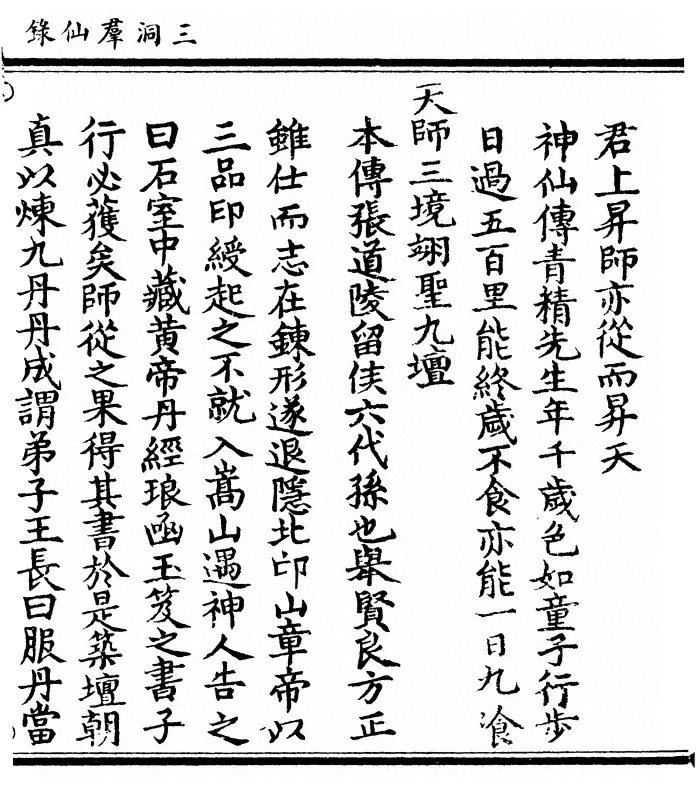 三洞羣仙錄
君上昇師亦從而昇天
神仙傳青精先生年千歲色如童子行步
日過五百里能終歲不食亦能一日九飡
天師三境翊聖九壇
本傳張道陵留侯六代孫也舉賢良方正
雖仕而志在鍊形遂退隱北邙山章帝以
三品印綬起之不就入嵩山遇神人告之
曰石室中藏黃帝丹經琅函玉笈之書子
行必獲矣師從之果得其書於是築壇朝
真以煉九丹丹成謂弟子王長曰服丹當